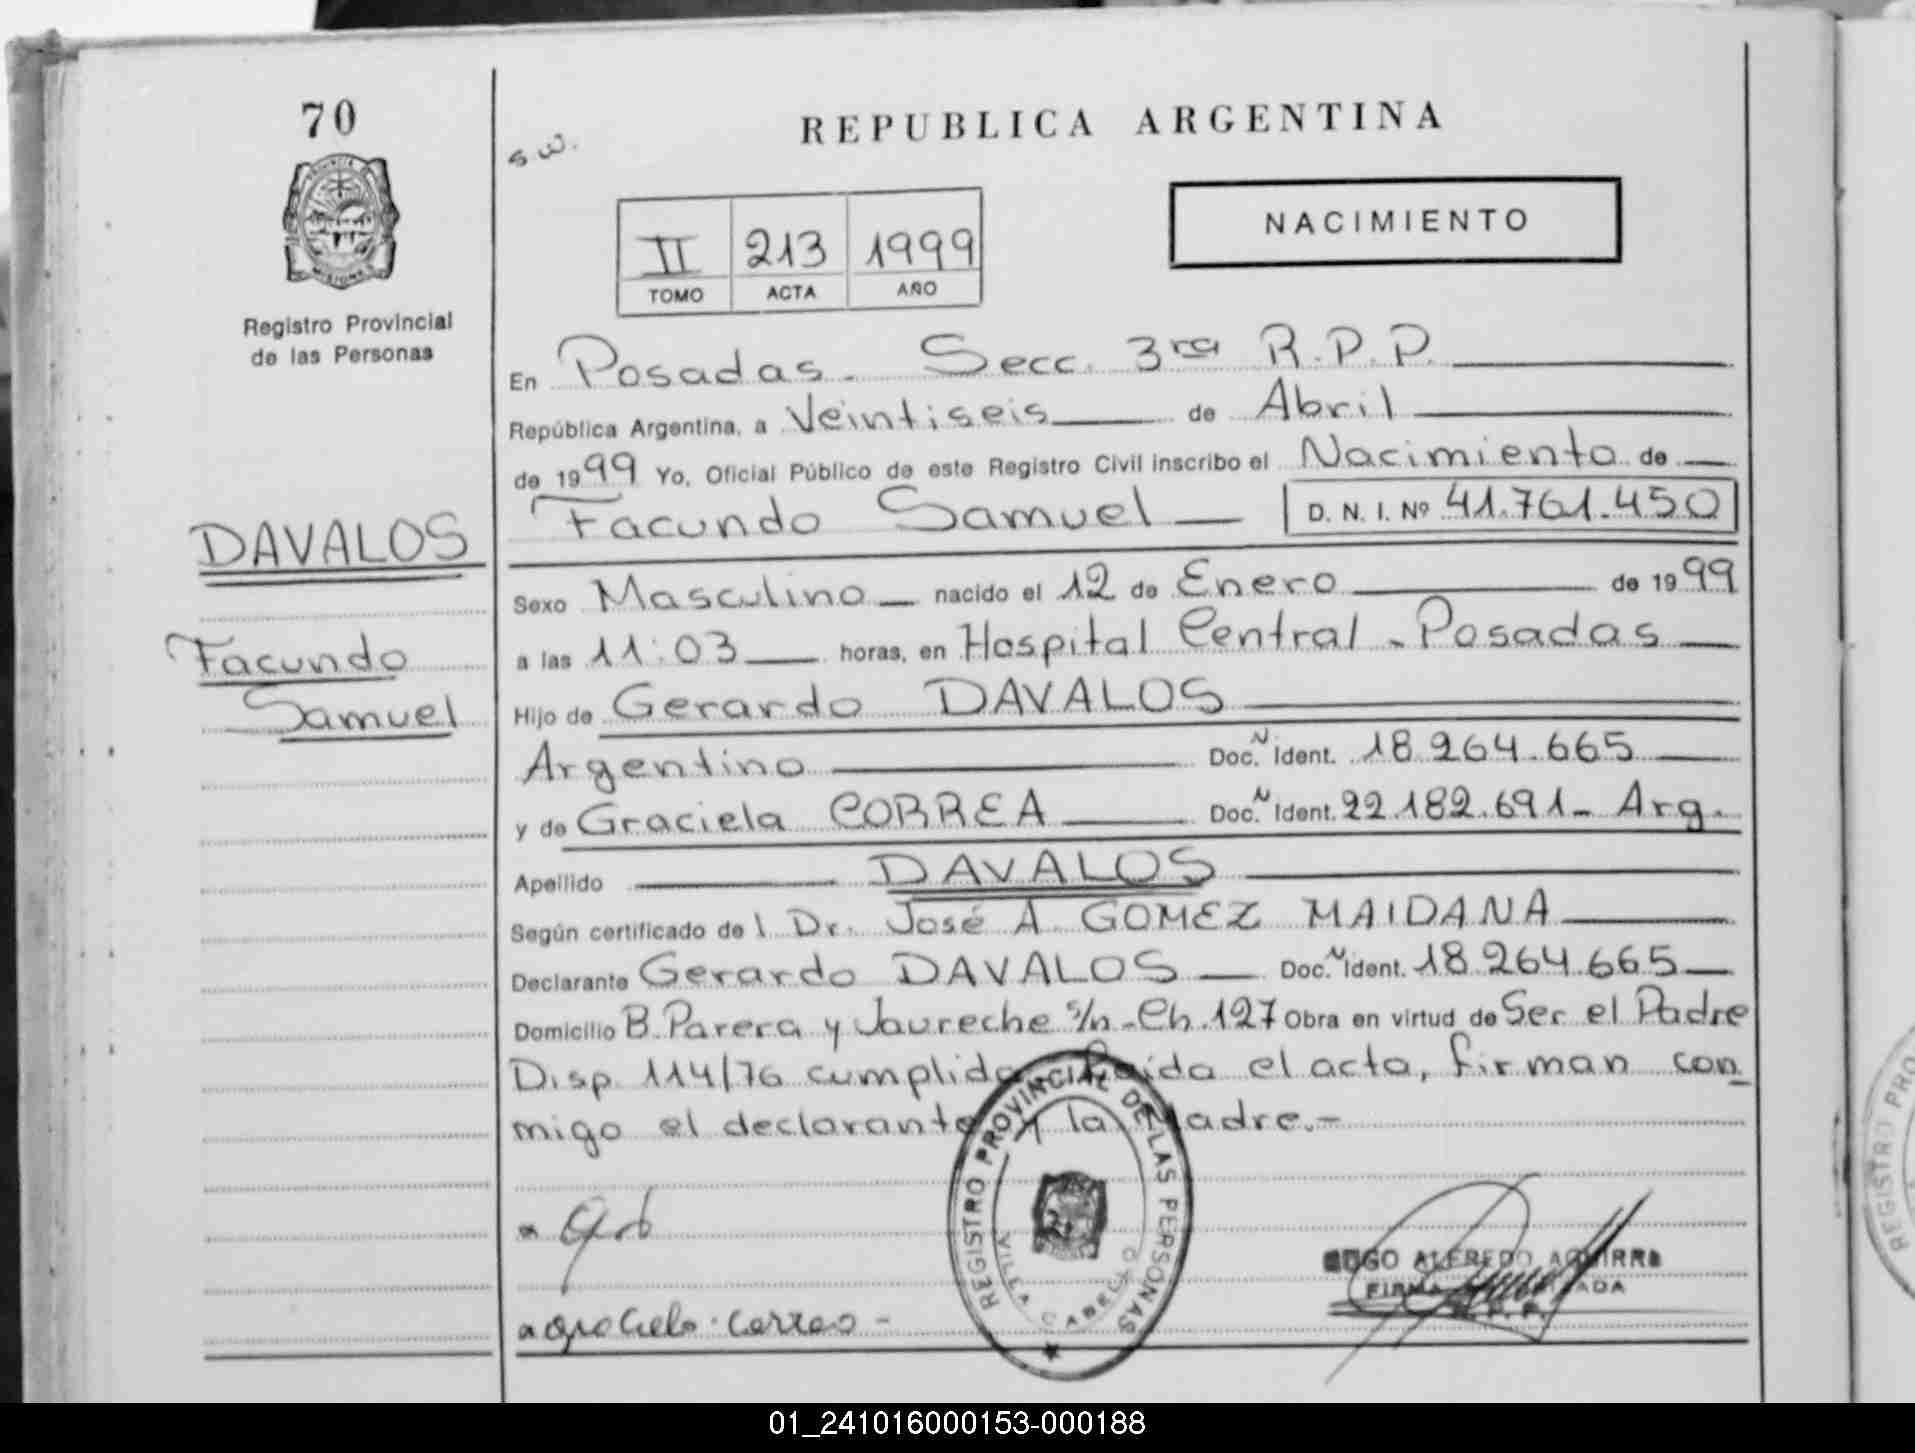 70
S.W.
REPUBLICA ARGENTINA
PROVINCIA DE MISIONES
Registro Provincial
de las Personas
II 213 1999
TOMO ACTA AÑO
NACIMIENTO
En Posadas. Secc. 3ra R.P.P.
República Argentina, a Veintiseis de Abril
de 1999 Yo, Oficial Público de este Registro Civil inscribo el Nacimiento de
Facundo Samuel D. N. I. Nº 41.761.450
DAVALOS
Facundo
Samuel
Sexo Masculino nacido el 12 de Enero de 1999
a las 11:03 horas, en Hospital Central - Posadas
Hijo de Gerardo DAVALOS
Argentino Doc. N Ident. 18.264.665
y de Graciela CORREA Doc. N Ident. 22.182.691- Arg.
Apellido DAVALOS
Según certificado del Dr. José A. GOMEZ MAIDANA
Declarante Gerardo DAVALOS Doc. N Ident. 18.264.665
Domicilio B. Parera y Jaureche s/n - Ch. 127 Obra en virtud de Ser el Padre
Disp. 114/76 cumplida. Leida el acta, firman con
migo el declarante y la Madre.-
REGISTRO PROVINCIAL DE LAS PERSONAS
VILLA CABELLO
HUGO ALFREDO AGUIRRE
FIRMA AUTORIZADA
R. P. P.
Graciela Correa -
REGISTRO PRO
01_241016000153-000188